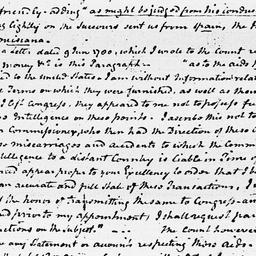 friend by adding "as might be judged from his conduct
ing lightly on the Succours sent us from Spain, the F
Louisiana.
a letter dated 9 June 1780, which I wrote to the Count re
money &c is this Paragraph — "as to the aids
ed to the united States, I am without Information relat
e Terms on which they were furnished, as well as those
I left Congress, they appeared to me not to possess
Intelligence on these points. I ascribe this not to
Commissioners, who then had the Direction of these
miscarriages and accidents to which the Comm
telligence to a distant Country is liable in Time of
appear proper to your Excellency to order that I be
an accurate and full State of these Transactions, I
the honor of transmitting the same to Congress — an
ed previous to my appointment, I shall request par
uctions on the subject." — — The Count however
any Statement or account respecting those aids. —